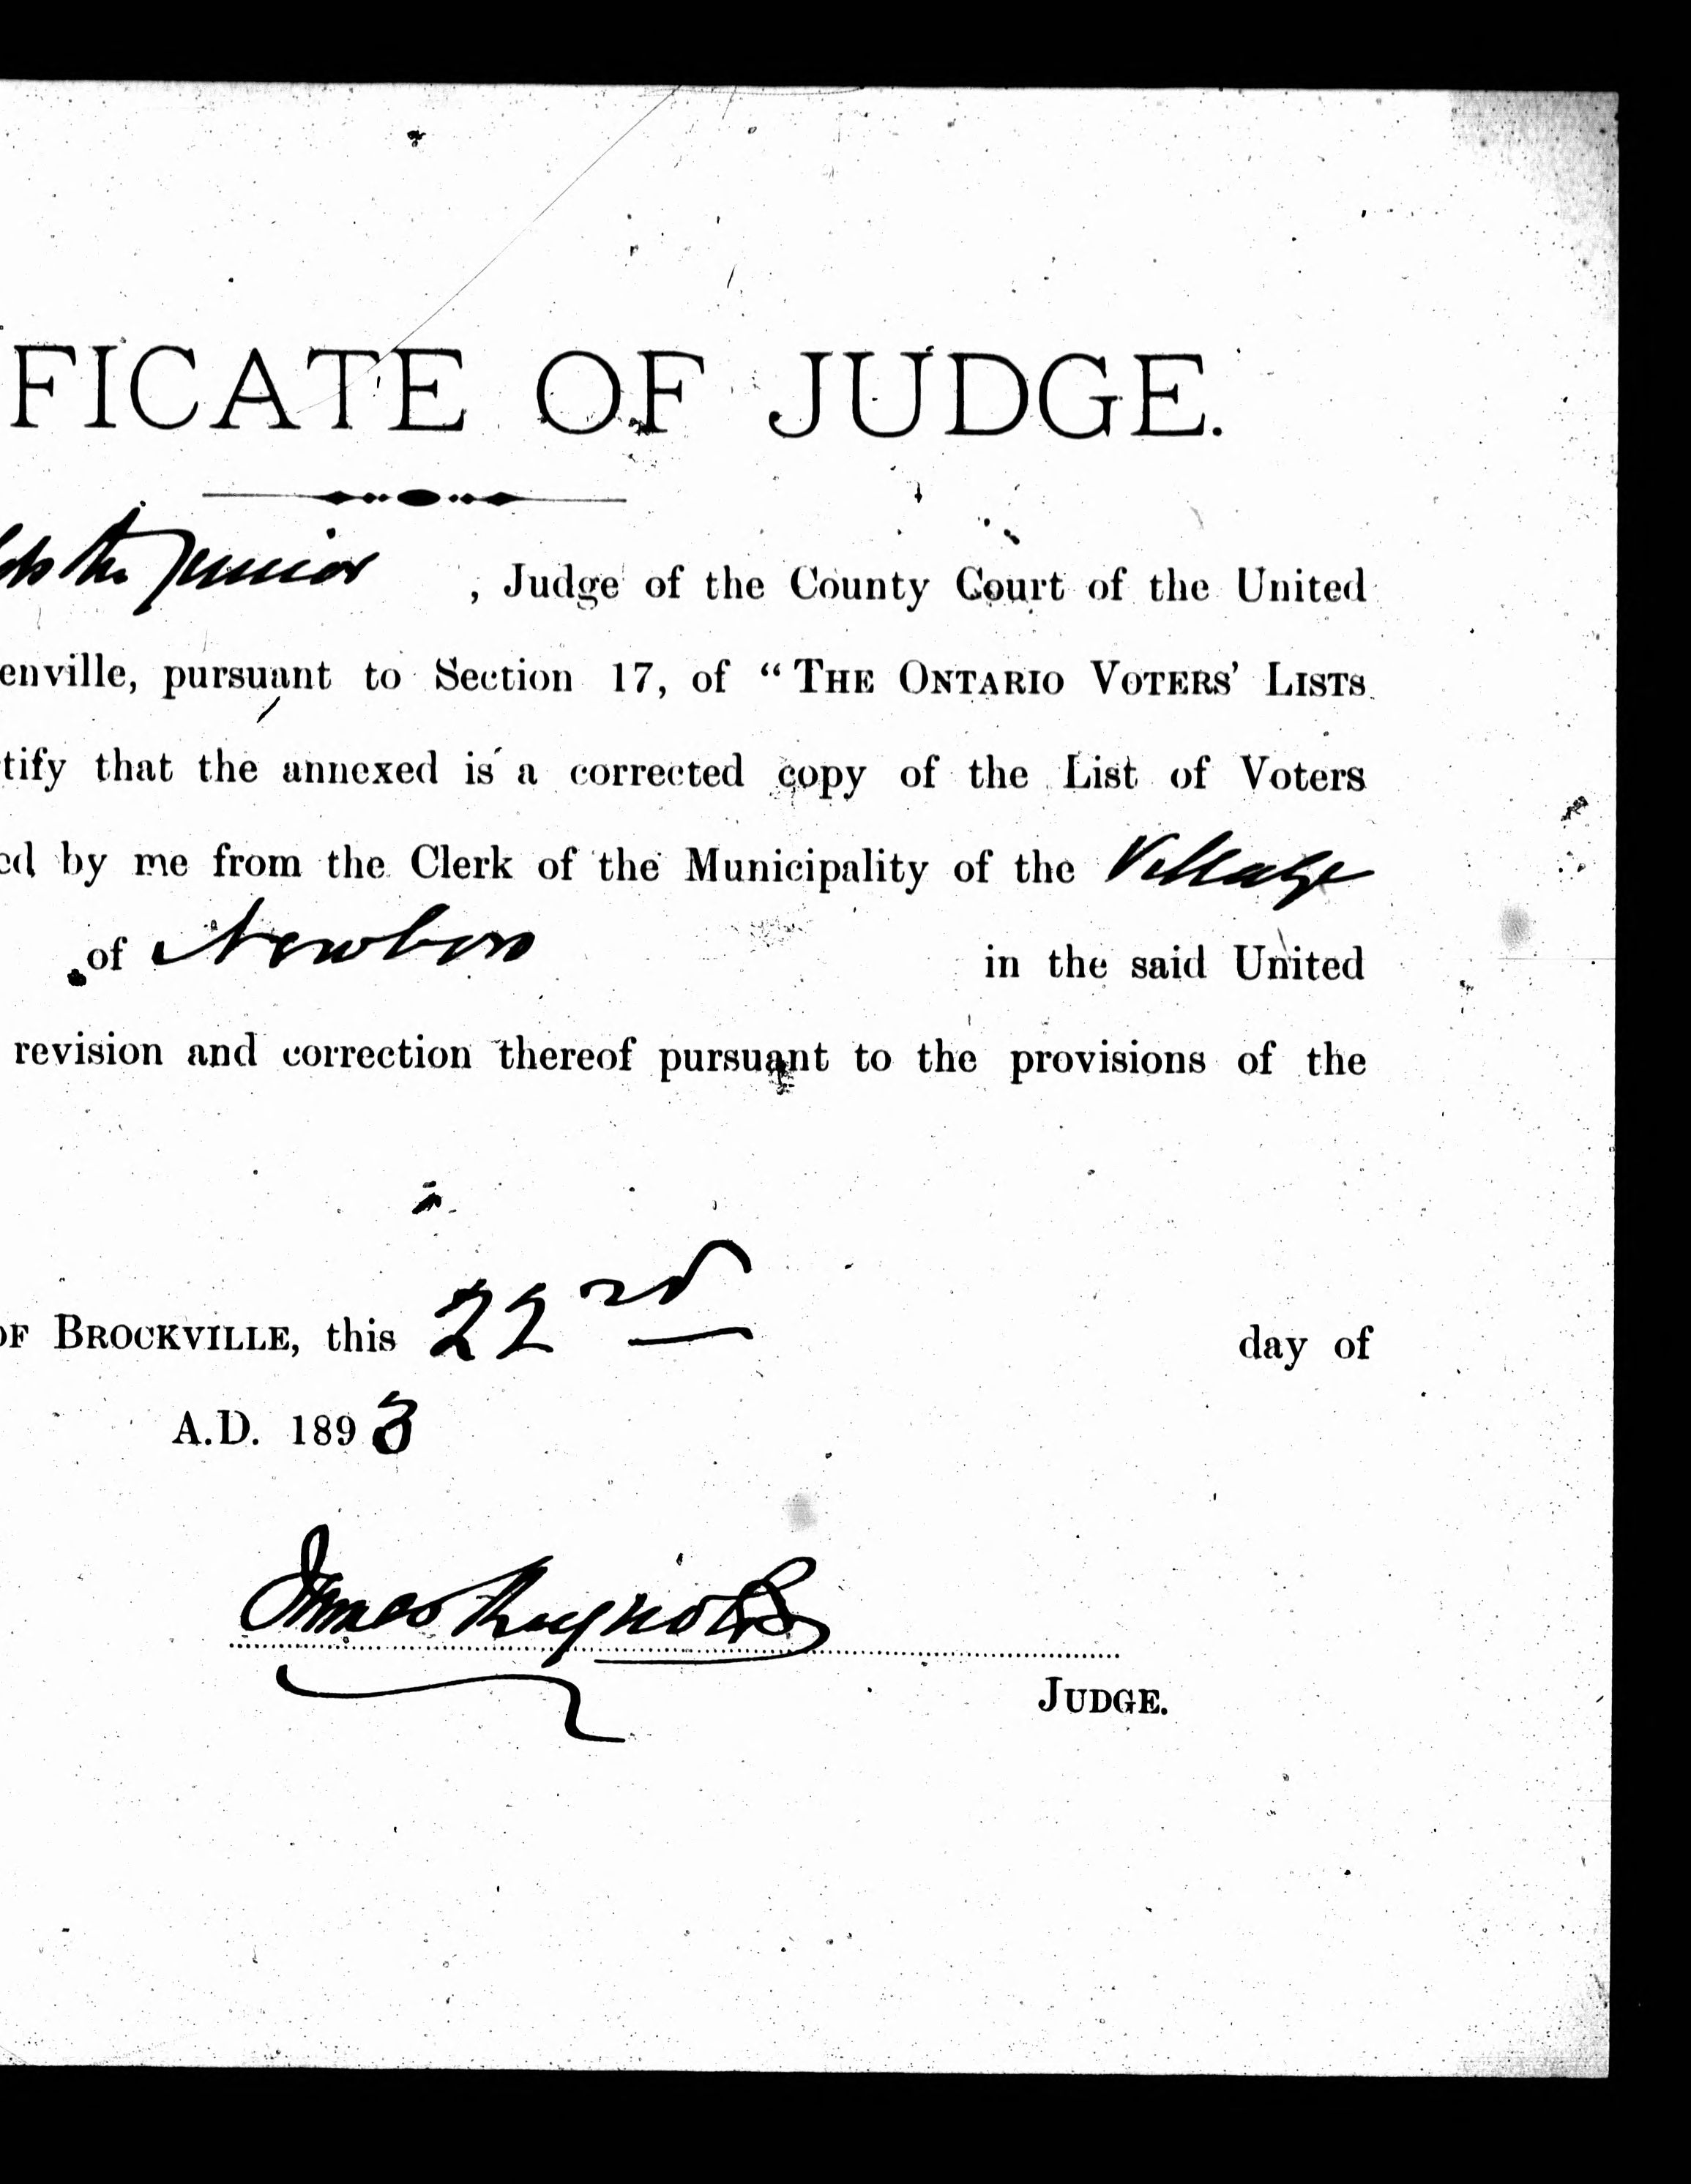 FICATE OF JUDGE.
lds the Junior, Judge of the County Court of the United
enville, pursuant to Section 17, of “THE ONTARIO VOTERS’ LISTS
tify that the annexed is a corrected copy of the List of Voters
ed by me from the Clerk of the Municipality of the Village
of Newboro in the said United
revision and correction thereof pursuant to the provisions of the
OF BROCKVILLE, this 22nd day of
A.D. 1893
James Reynolds
JUDGE.